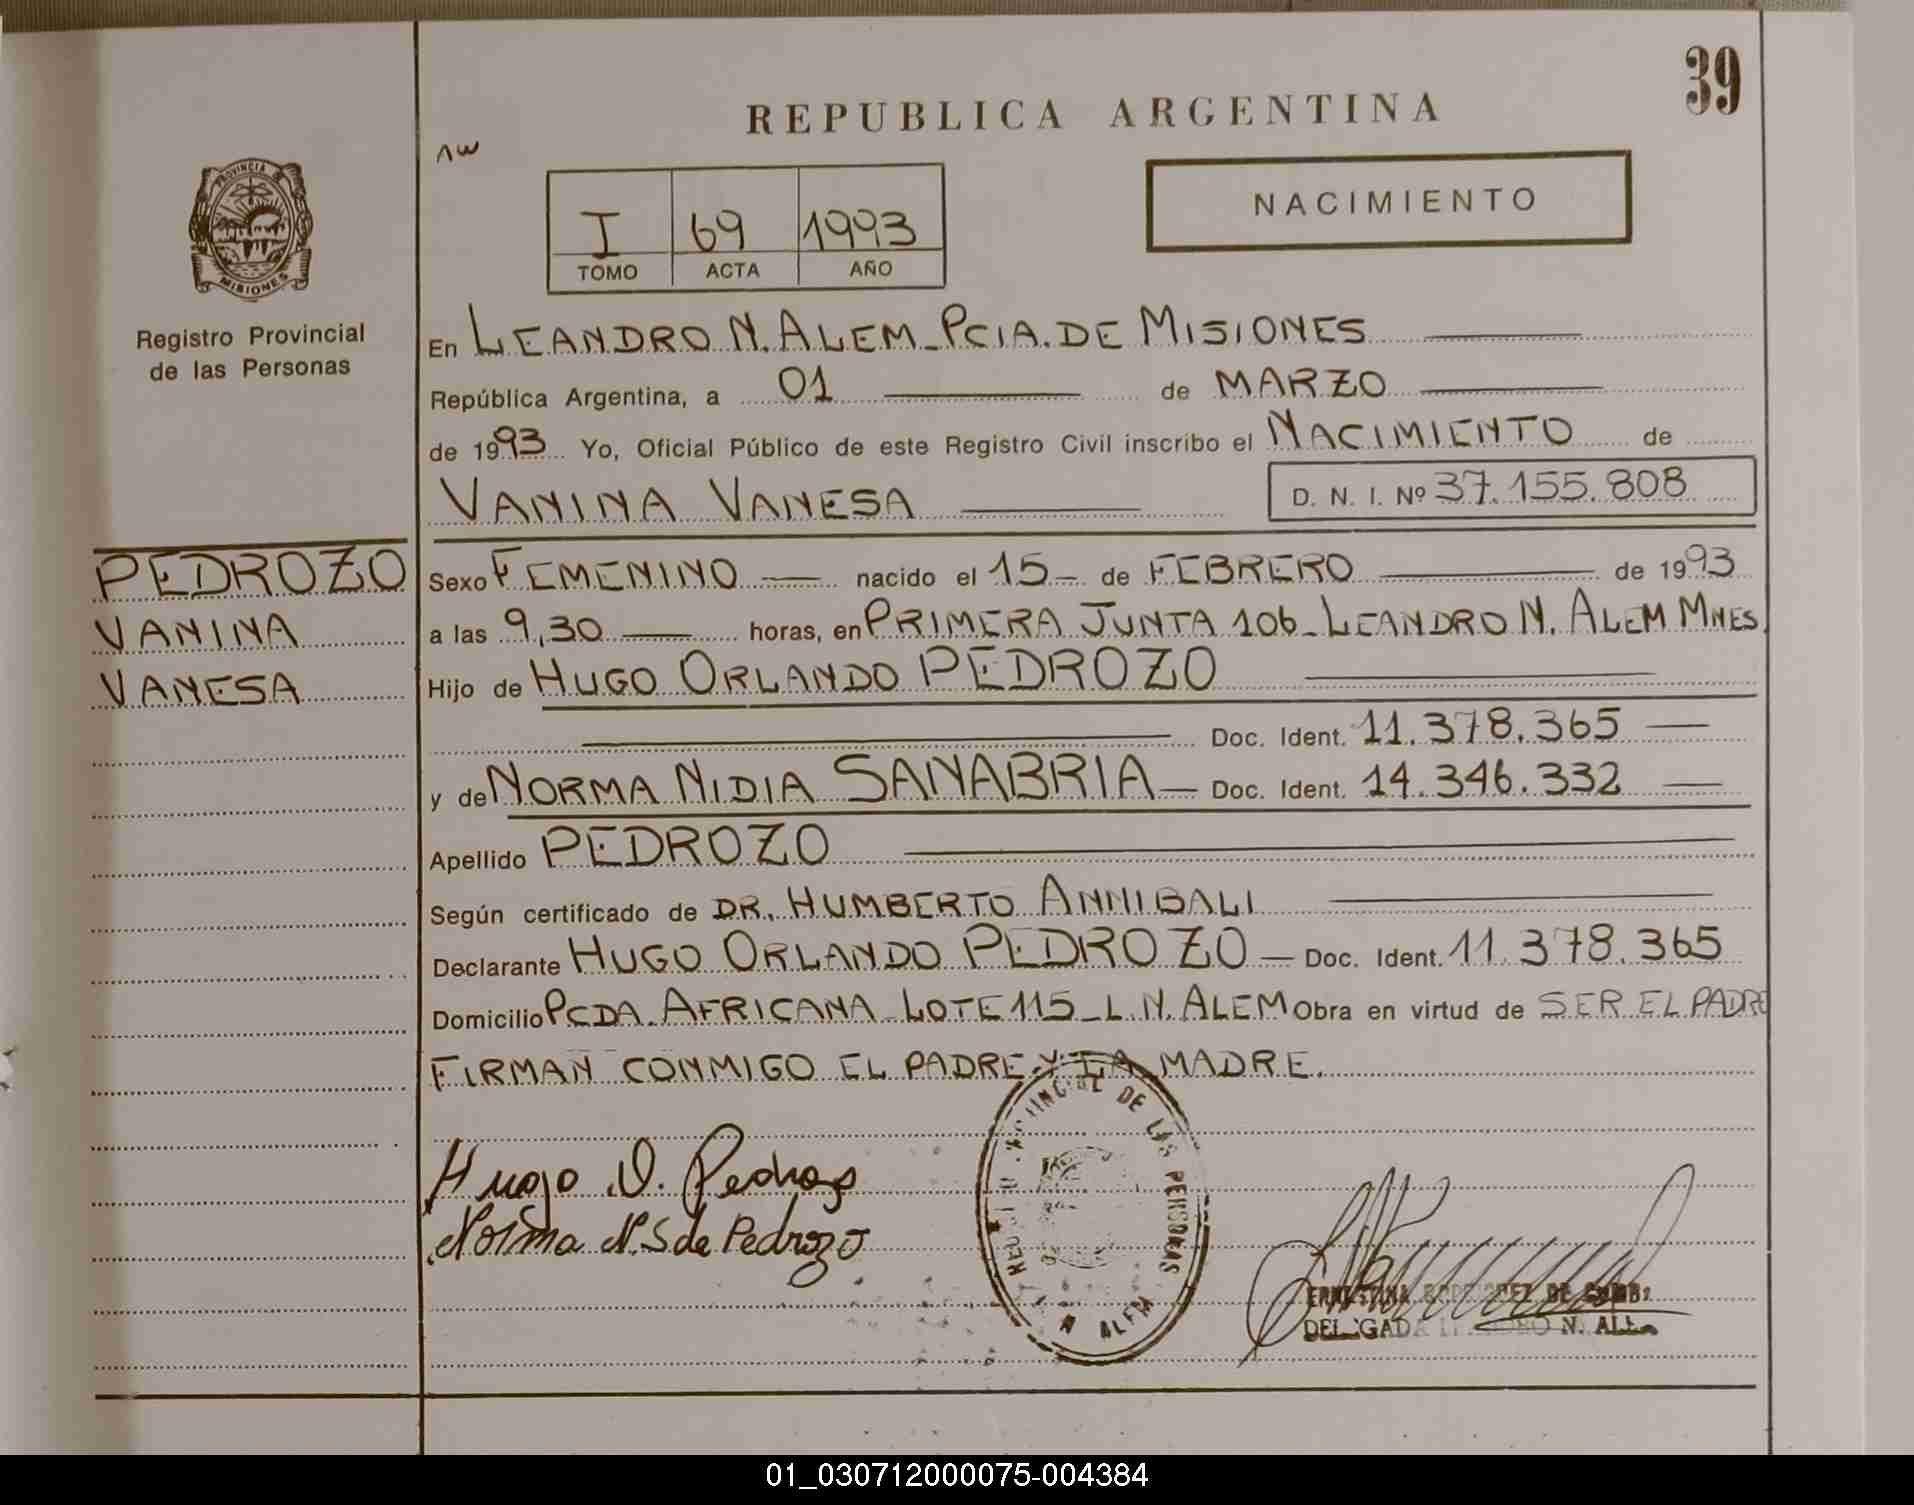 39
REPUBLICA ARGENTINA
NACIMIENTO
I 69 1993
TOMO ACTA AÑO
PROVINCIA DE MISIONES
Registro Provincial
de las Personas
En LEANDRO N. ALEM_PCIA. DE MISIONES
República Argentina, a 01 de MARZO
de 1993 Yo, Oficial Público de este Registro Civil inscribo el NACIMIENTO de
VANINA VANESA D. N. I. Nº 37.155.808
PEDROZO
VANINA
VANESA
Sexo FEMENINO nacido el 15 de FEBRERO de 1993
a las 9,30 horas, en PRIMERA JUNTA 106_LEANDRO N. ALEM MNES.
Hijo de HUGO ORLANDO PEDROZO
Doc. Ident. 11.378.365
y de NORMA NIDIA SANABRIA Doc. Ident. 14.346.332
Apellido PEDROZO
Según certificado de DR. HUMBERTO ANNIBALI
Declarante HUGO ORLANDO PEDROZO Doc. Ident. 11.378.365
Domicilio PCDA. AFRICANA LOTE 115_L.N. ALEM Obra en virtud de SER EL PADRE
FIRMAN CONMIGO EL PADRE Y LA MADRE.
Hugo O. Pedrozo
Norma N. S de Pedrozo
DE LAS PERSONAS
N ALEM
N. ALEM
01_030712000075-004384